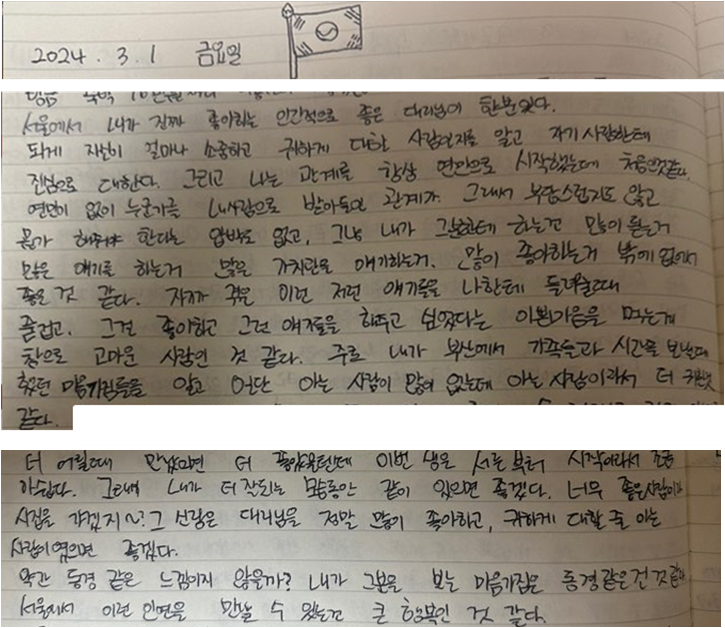 2024. 3. 1 금요일
서울에서 내가 진짜 좋아하는 인간적으로 좋은 대리님이 한분있다.
되게 자신이 얼마나 소중하고 귀하게 대할 사람인지를 알고 자기사람한테
진심으로 대한다. 그리고 나는 관계를 항상 연인으로 시작했는데 처음인것같다.
연인이 없이 누군가를 내사람으로 받아들인 관계가. 그래서 부담스럽지도 않고
뭔가 해줘야 한다는 압박도 없고, 그냥 내가 그분한테 하는건 많이 듣는거
많은 얘기를 하는거 많은 가치관을 얘기하는거. 많이 좋아하는거 밖에 없어서
좋은 것 같다. 자기가 겪은 이런 저런 얘기들을 나한테 들려줄때
즐겁고, 그걸 좋아하고 그런 얘기들을 해주고 싶었다는 이쁜마음을 먹는게
참으로 고마운 사람인 것 같다. 주로 내가 부산에서 가족들과 시간을 보낼때
했던 마음가짐들을 알고 있단 아는 사람이 많이 없는데 아는 사람이라서 더
같다.
더 어릴때 만났으면 더 좋았을텐데 이번 생은 서른부터 시작이라서 조금
아쉽다. 그래도 내가 더 있으면 좋겠다. 너무 좋은사람이라
시집을 가겠지~? 그 신랑은 대리님을 정말 많이 좋아하고, 귀하게 대할 줄 아는
사람이였으면 좋겠다.
약간 동경 같은 느낌이지 않을까? 내가 그분을 보는 마음가짐은 동경같은건 것 같다
서울에서 이런 인연을 만날 수 있는건 큰 행복인 것 같다.